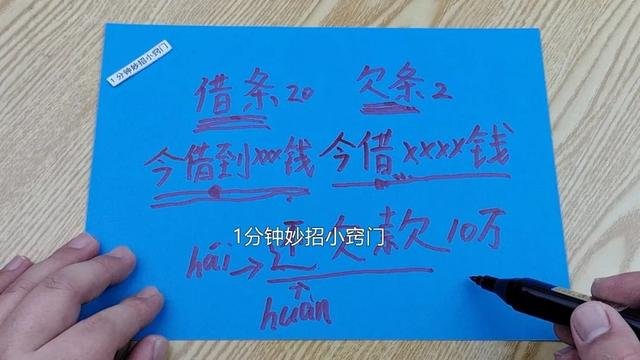 1分钟妙招小窍门
借条20 欠条2
今借到xxx钱 今借xxxx钱
1分钟妙招小窍门
hái→还欠款10万
↑
huàn